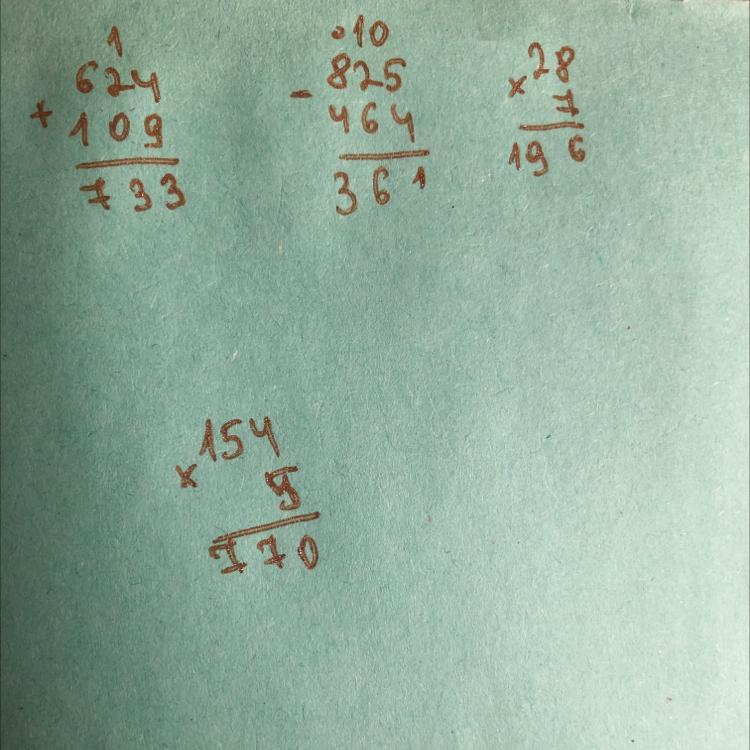 1
624
+
109
733
•10
825
-
464
361
28
×
7
196
154
×
5
770